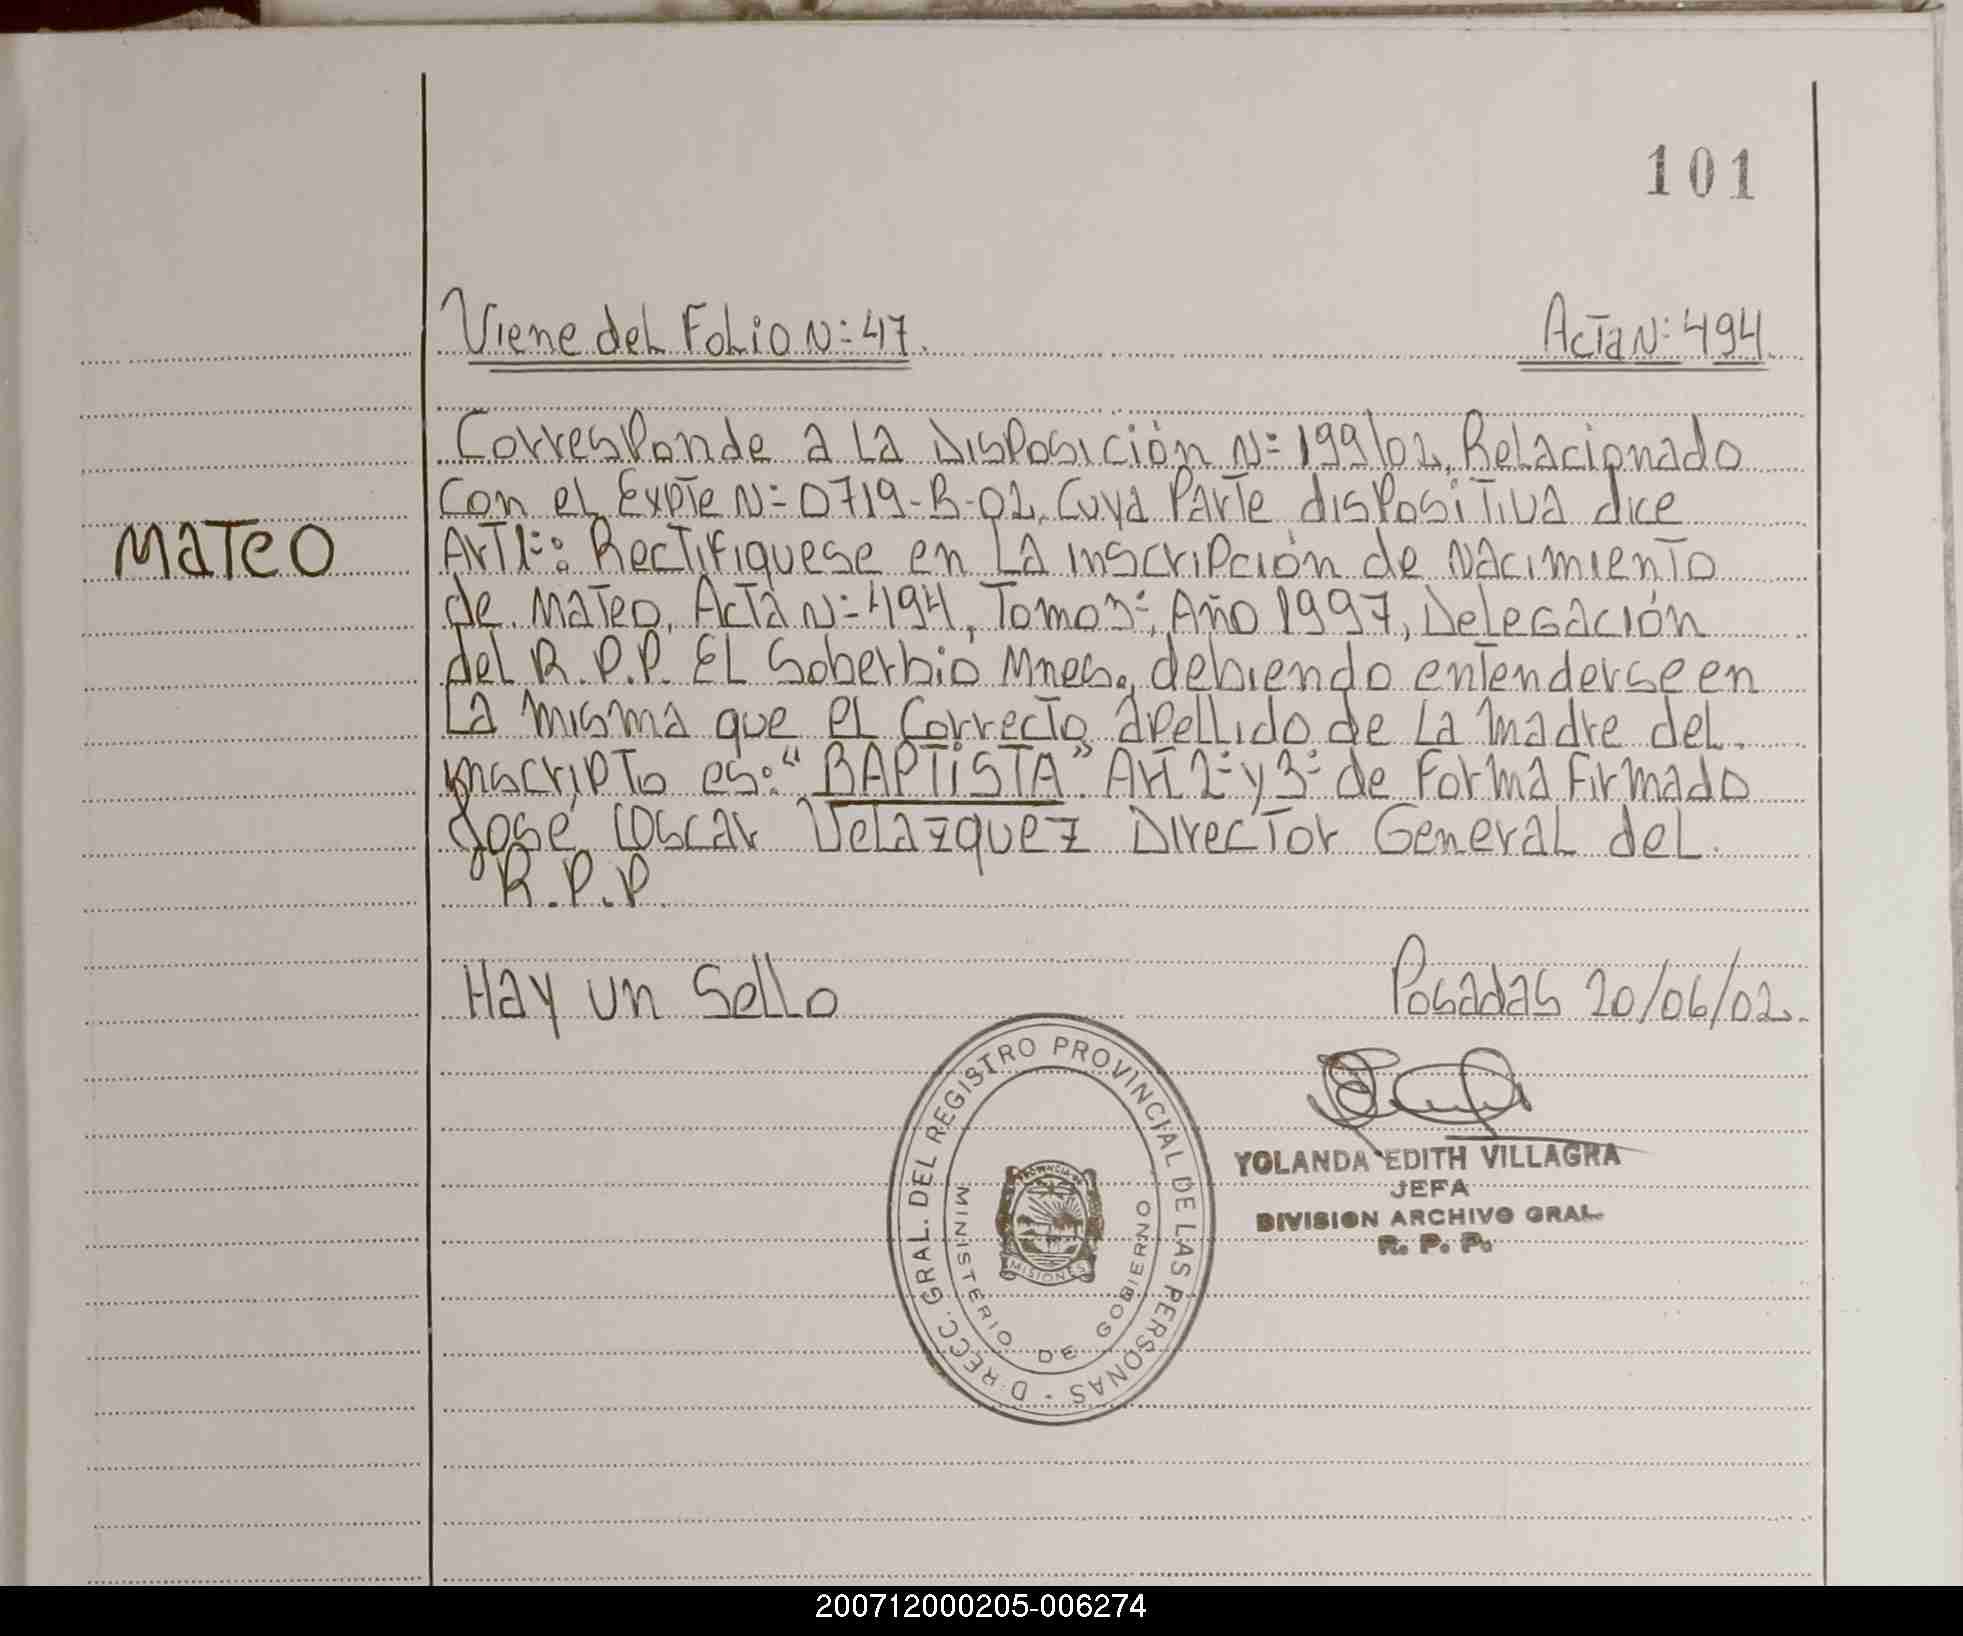 101
Viene del Folio N: 47. Acta N: 494.
Corresponde a la Disposición N: 199/02, Relacionado
Con el Expte N: 0719-B-02, Cuya Parte dispositiva dice
Mateo
Art 1º: Rectifiquese en La inscripción de Nacimiento
de Mateo, Acta N: 494, Tomo 3º, Año 1997, Delegación
del R.P.P. El Soberbio Mnes., debiendo entenderse en
La misma que el Correcto apellido de La madre del
inscripto es: "BAPTiSTA" Art 2º y 3º de Forma Firmado
José Oscar Velazquez Director General del
R.P.P.
Hay un Sello Posadas 20/06/02.
DIRECC. GRAL. DEL REGISTRO PROVINCIAL DE LAS PERSONAS
MINISTERIO DE GOBIERNO
PROVINCIA DE
MISIONES
YOLANDA EDITH VILLAGRA
JEFA
DIVISION ARCHIVO GRAL
R. P. P.
200712000205-006274